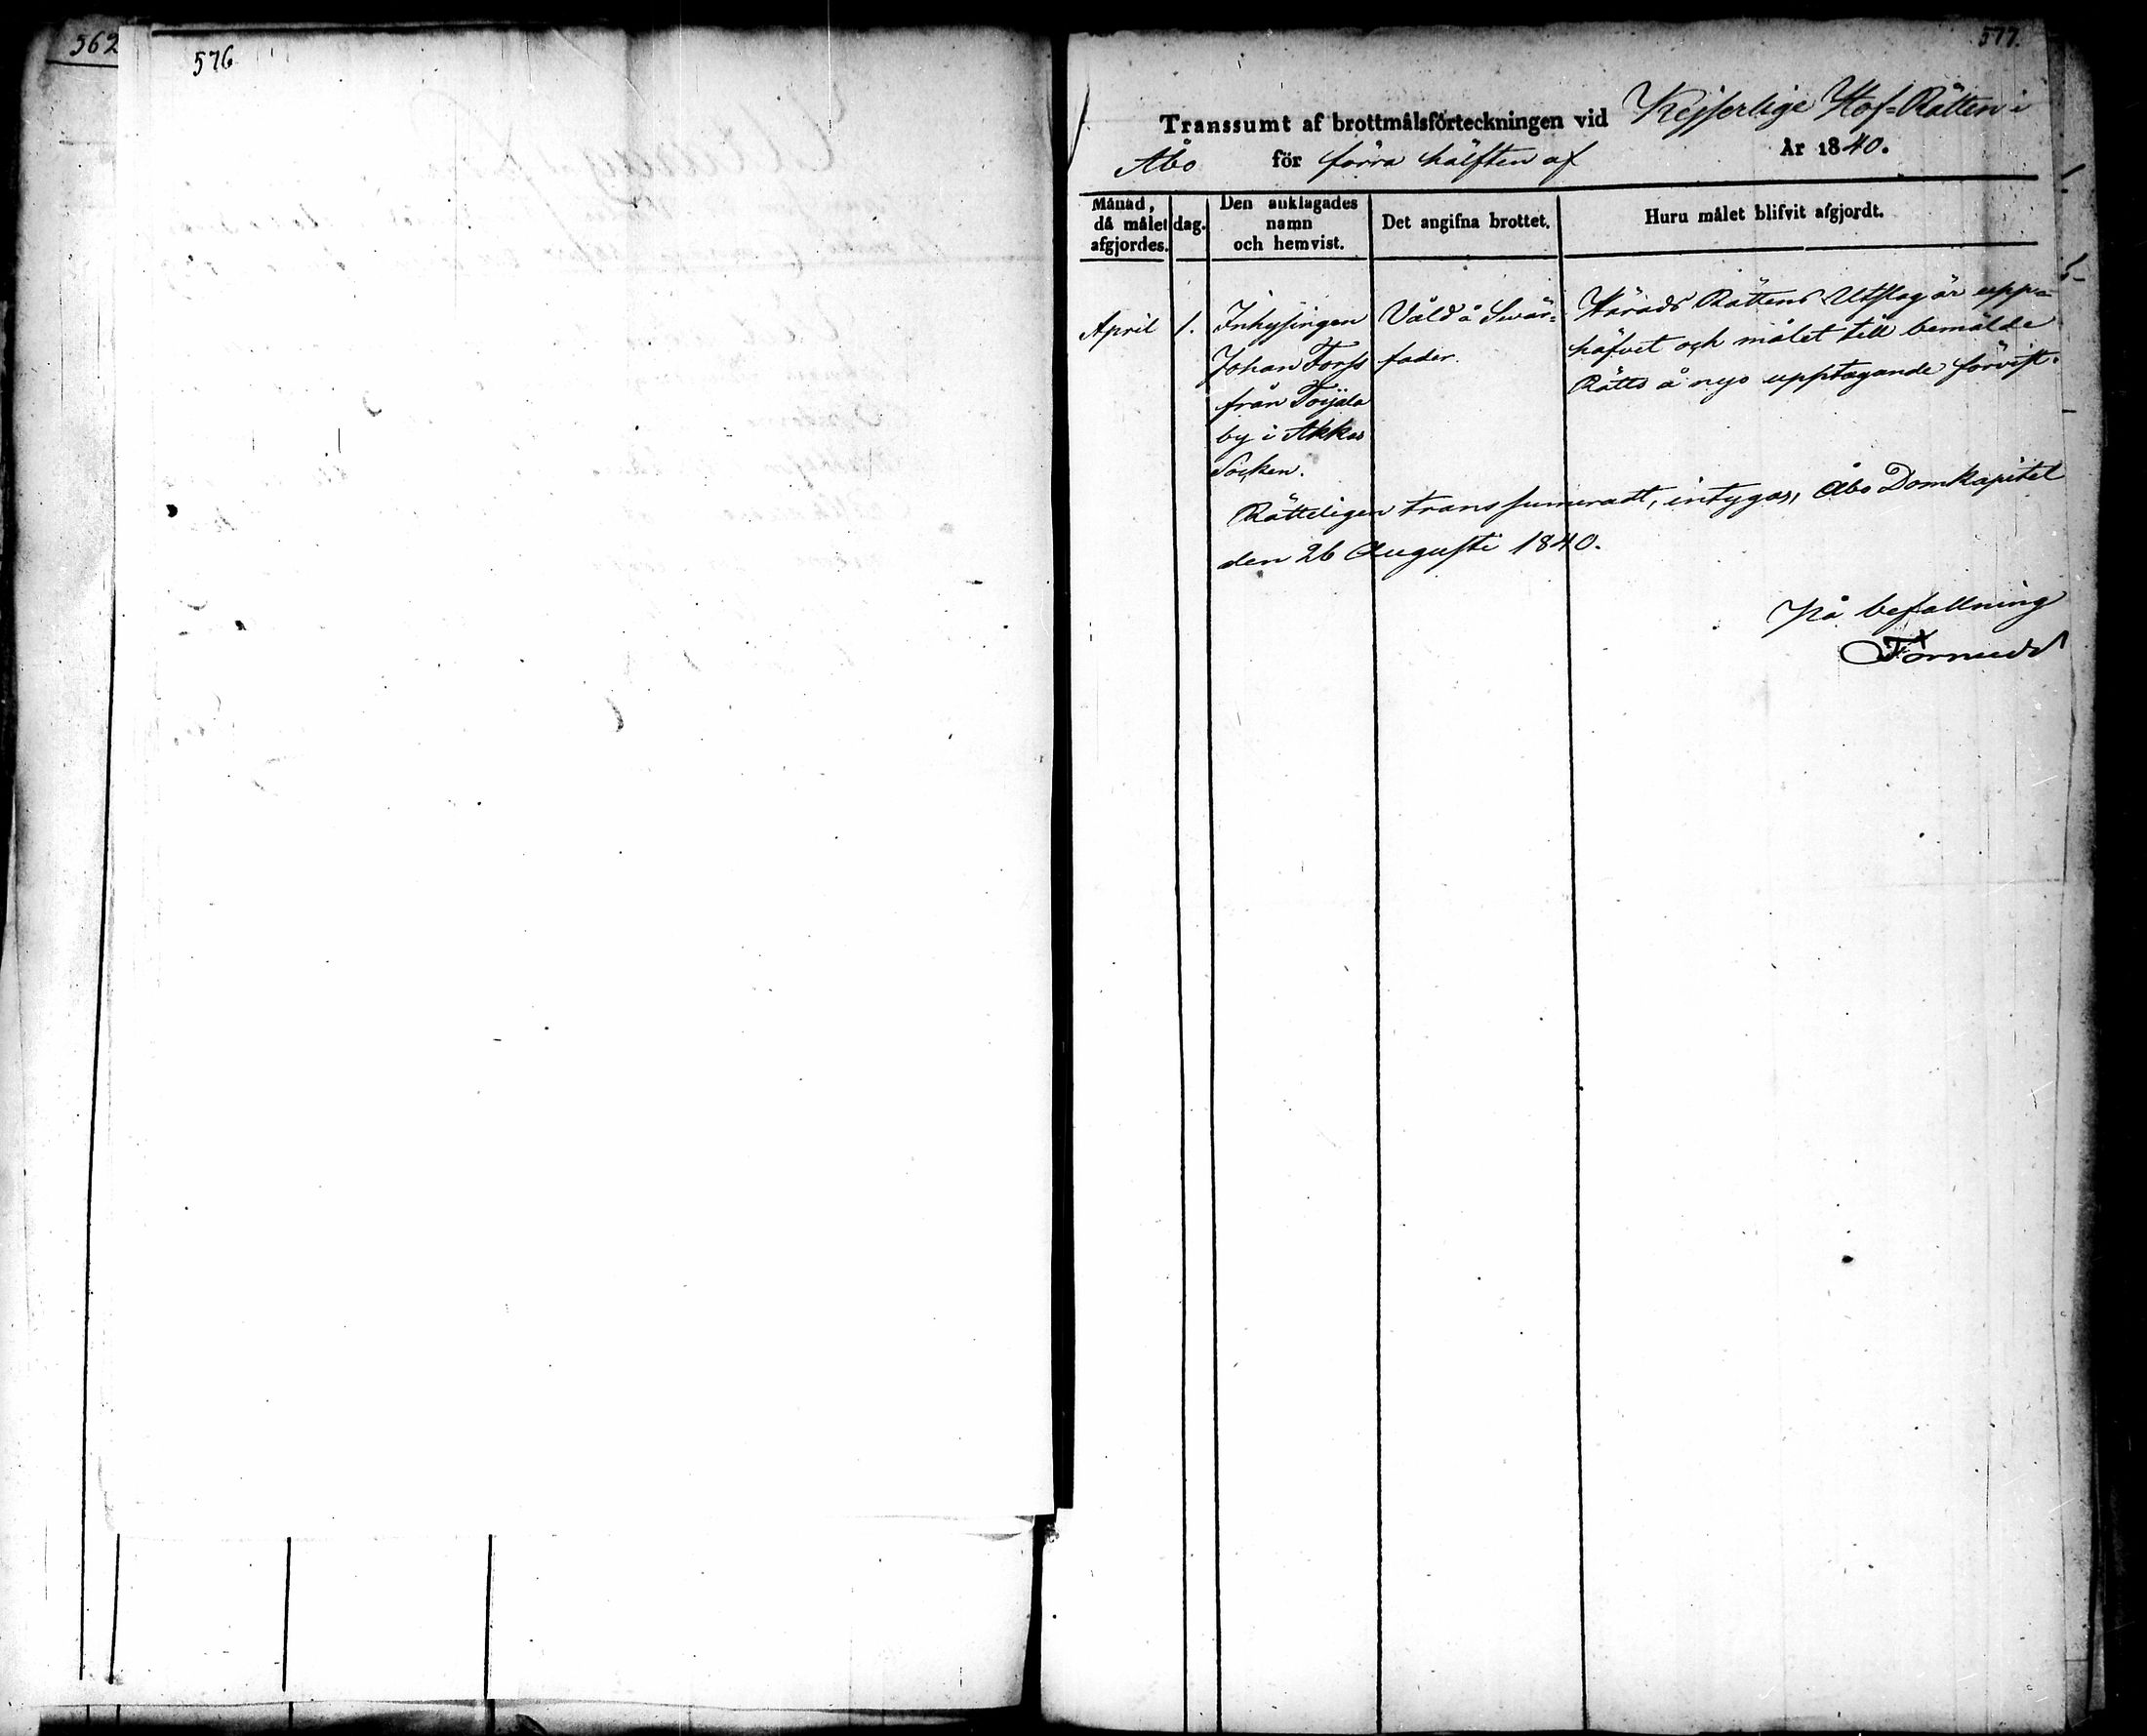 562
576
577.
Transsumt af brottmålsförteckningen vid Kejserlige Hof-Rätten i
Åbo för förra hälften af År 1840.
Månad, då målet afgjordes. dag. Den anklagades namn och hemvist. Det angifna brottet. Huru målet blifvit afgjordt.
April 1. Inhysingen Våld å Swär- Härads Rättens Utslag är upp-
Johan Forss fader. häfvet och målet till bemälde
från Toijala Rätts å nyo upptagande förvist.
by i Akkas
Socken.
Rätteligen transsumeradt, intygas, Åbo Domkapitel
den 26 Augusti 1840.
På befallning